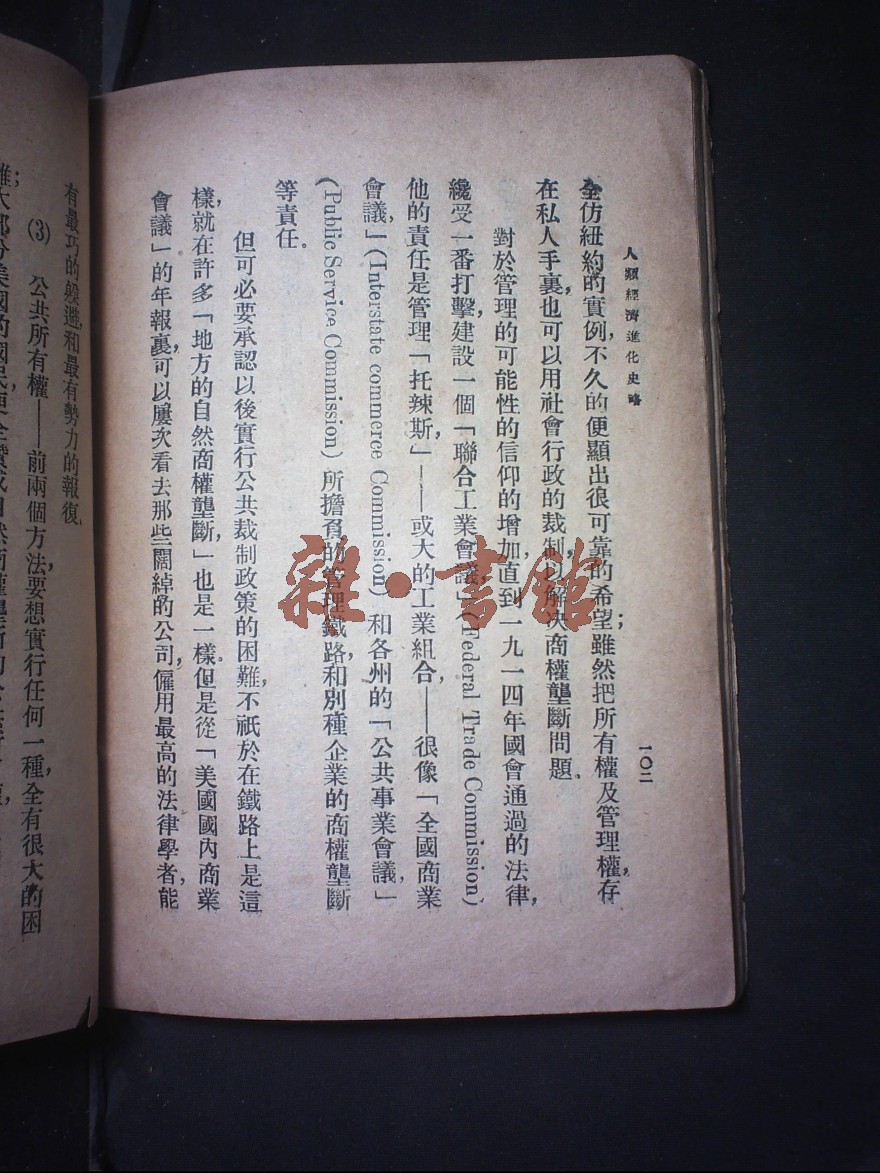 人類經濟進化史略
一〇二
全仿紐約的實例，不久的便顯出很可靠的希望；雖然把所有權及管理權，存
在私人手裏，也可以用社會行政的裁制，以解决商權壟斷問題。
對於管理的可能性的信仰的增加，直到一九一四年國會通過的法律，
纔受一番打擊，建設一個「聯合工業會議，」(Federal Trade Commission)
他的責任是管理「托辣斯，」——或大的工業組合，——很像「全國商業
會議，」(Interstate commerce Commission) 和各州的「公共事業會議，」
(Public Service Commission) 所擔負的管理鐵路和別種企業的商權壟斷
等責任。
但可必要承認以後實行公共裁制政策的困難，不祇於在鐵路上是這
樣，就在許多「地方的自然商權壟斷，」也是一樣。但是從「美國國內商業
會議」的年報裏，可以屢次看去那些闊綽的公司，僱用最高的法律學者，能
有最巧的躱避，和最有勢力的報復。
(3) 公共所有權——前兩個方法，要想實行任何一種，全有很大的困
雜·書館